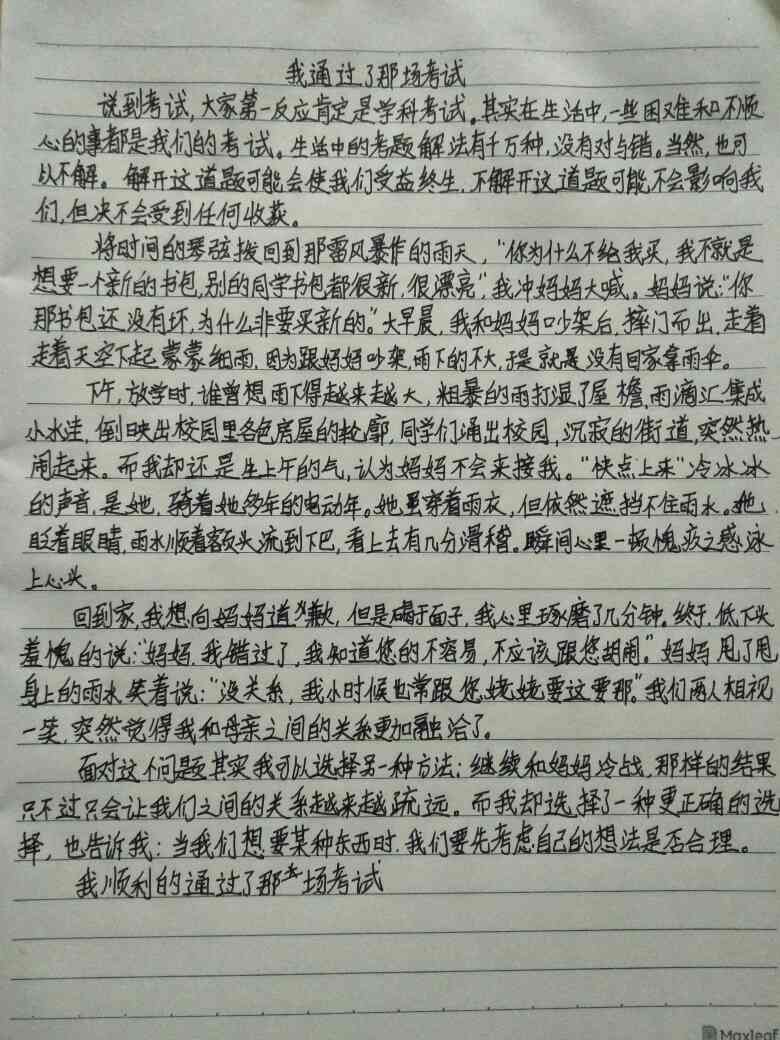 我通过了那场考试
说到考试,大家第一反应肯定是学科考试。其实在生活中,一些困难和不顺
心的事都是我们的考试。生活中的考题解法有千万种,没有对与错。当然,也可
以不解。解开这道题可能会使我们受益终生,不解开这道题可能不会影响我
们,但决不会受到任何收获。
将时间的琴弦拨回到那雷风暴作的雨天,“你为什么不给我买,我不就是
想要一个新的书包,别的同学书包都很新,很漂亮”,我冲妈妈大喊。妈妈说:“你
那书包还没有坏,为什么非要买新的。”大早晨,我和妈妈吵架后,摔门而出,走着
走着天空下起蒙蒙细雨,因为跟妈妈吵架,雨下的不大,于是就是没有回家拿雨伞。
下午,放学时,谁曾想雨下得越来越大,粗暴的雨打湿了屋檐,雨滴汇集成
小水洼,倒映出校园里各色房屋的轮廓,同学们涌出校园,沉寂的街道,突然热
闹起来。而我却还是生上午的气,认为妈妈不会来接我。“快点上来”冷冰冰
的声音,是她,骑着她多年的电动车。她虽穿着雨衣,但依然遮挡不住雨水。她
眨着眼睛,雨水顺着额头流到下巴,看上去有几分滑稽。瞬间心里一顿愧疚之感泳
上心头。
回到家,我想向妈妈道歉,但是碍于面子,我心里琢磨了几分钟。终于,低下头
羞愧的说:“妈妈,我错过了,我知道您的不容易,不应该跟您胡闹。”妈妈甩了甩
身上的雨水笑着说:“没关系,我小时候也常跟您姥姥要这要那。”我们两人相视
一笑,突然觉得我和母亲之间的关系更加融洽了。
面对这个问题其实我可以选择另一种方法:继续和妈妈冷战,那样的结果
只不过只会让我们之间的关系越来越疏远。而我却选择了一种更正确的选
择,也告诉我:当我们想要某种东西时,我们要先考虑自己的想法是否合理。
我顺利的通过了那一场考试
Maxleaf